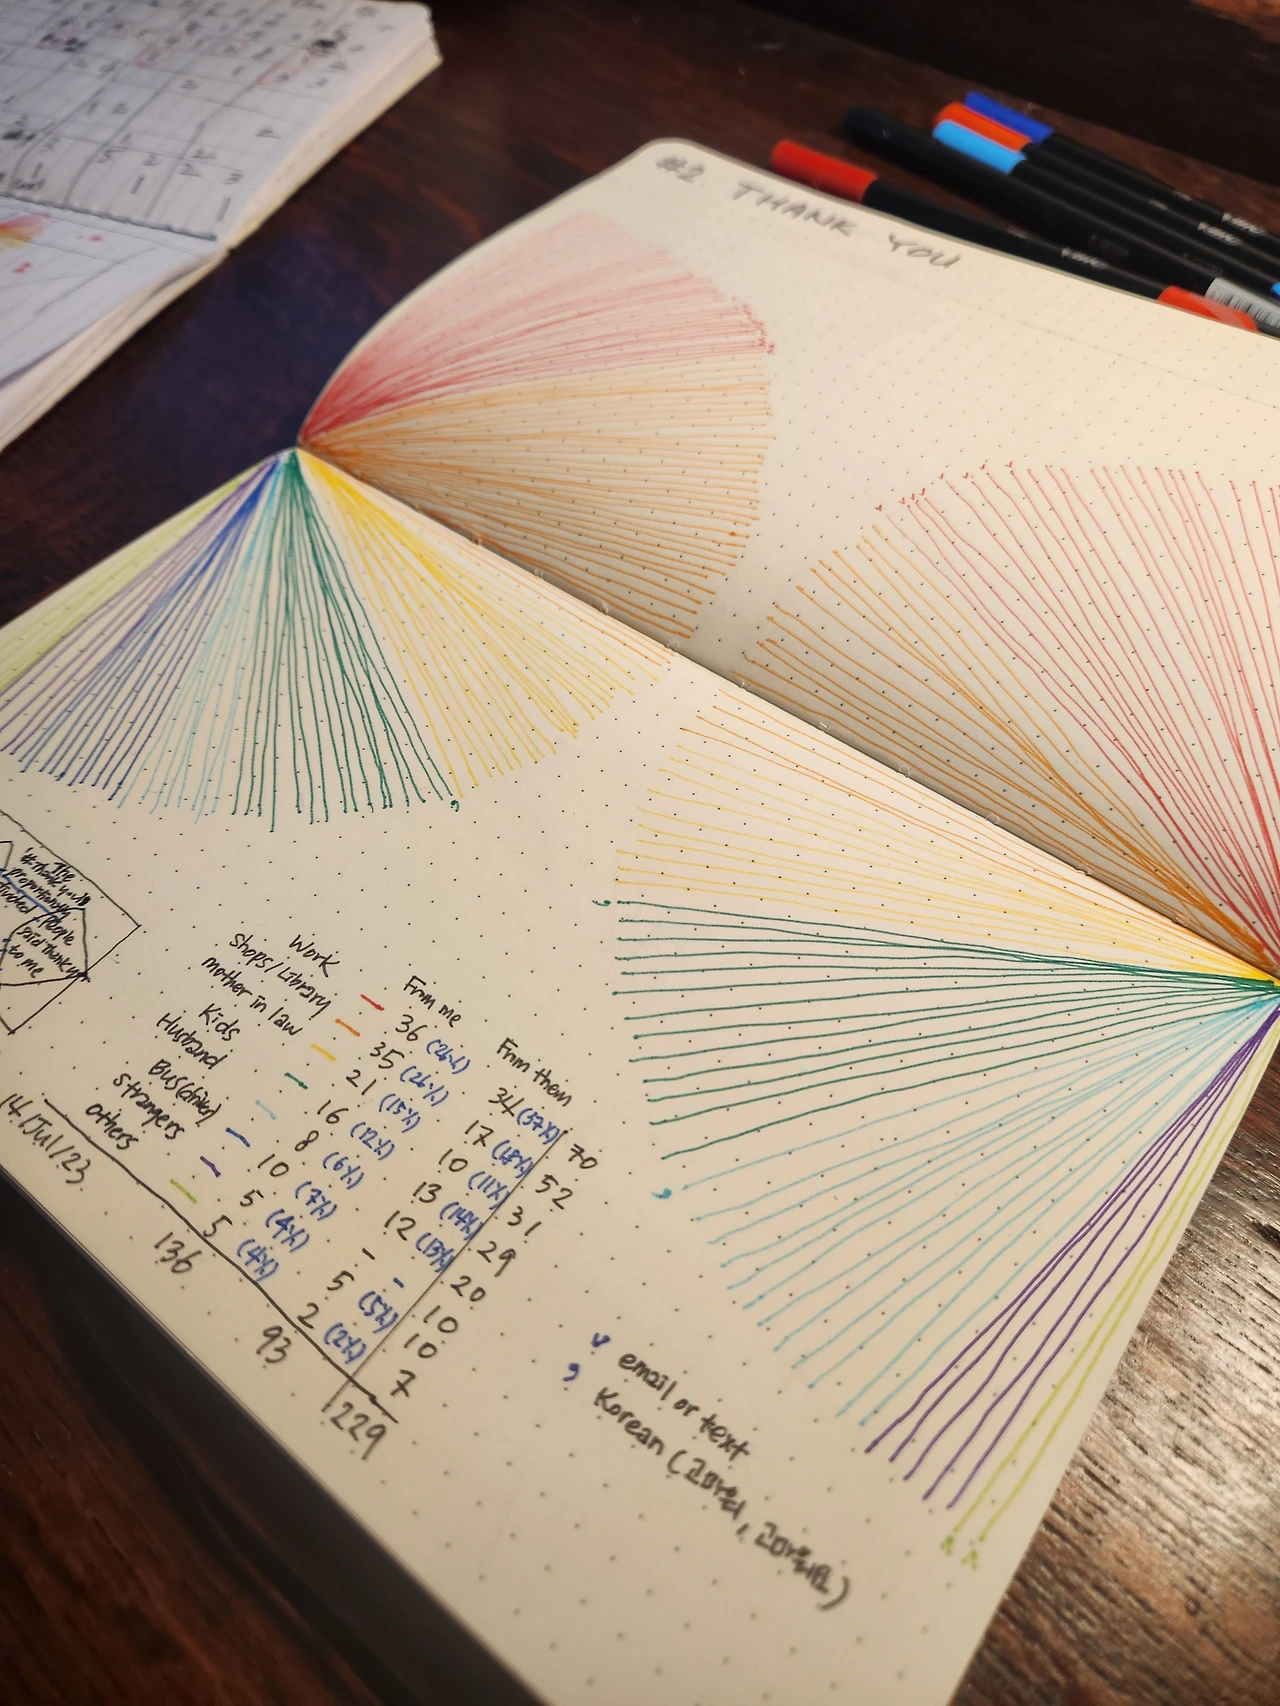 #2. THANK YOU
The
"# thank you" is
proportionally
People
said thank you
to me
From me From them
Work 36 (26%) 34 (37%) 70
Shops/Library 35 (26%) 17 (18%) 52
mother in law 21 (15%) 10 (11%) 31
Kids 16 (12%) 13 (14%) 29
Husband 8 (6%) 12 (13%) 20
Bus(driver) 10 (7%) - - 10
Strangers 5 (4%) 5 (5%) 10
others 5 (4%) 2 (2%) 7
136 93 229
14/Jul/23
email or text
Korean (고마워, 고마워요)